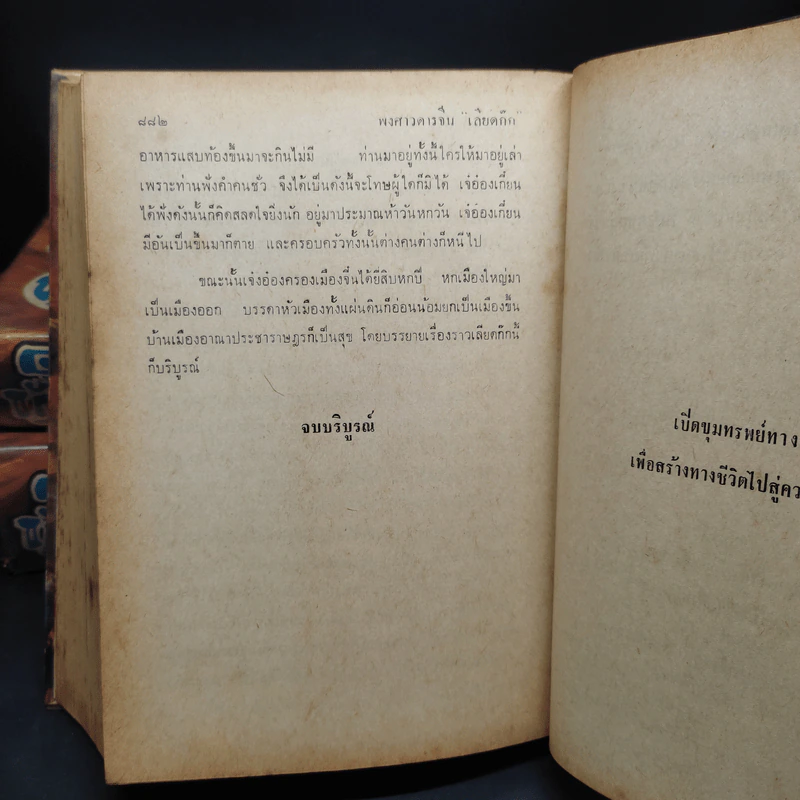 ๘๘๒ พงศาวดารจีน "เลียดก๊ก"
อาหารแสบท้องขึ้นมาจะกินไม่มี ท่านมาอยู่ทั้งนี้ใครให้มาอยู่เล่า
เพราะท่านฟังคำคนชั่ว จึงได้เป็นดังนี้จะโทษผู้ใดก็มิได้ เจ๋อ๋องเกี๋ยน
ได้ฟังดังนั้นก็คิดสลดใจยิ่งนัก อยู่มาประมาณห้าวันหกวัน เจ๋อ๋องเกี๋ยน
มีอันเป็นขึ้นมาก็ตาย และครอบครัวทั้งนั้นต่างคนต่างก็หนีไป
ขณะนั้นเจ๋งอ๋องครองเมืองจิ๋นได้ยี่สิบหกปี หกเมืองใหญ่มา
เป็นเมืองออก บรรดาหัวเมืองทั้งแผ่นดินก็อ่อนน้อมยกเป็นเมืองขึ้น
บ้านเมืองอาณาประชาราษฎรก็เป็นสุข โดยบรรยายเรื่องราวเลียดก๊กนี้
ก็บริบูรณ์
จบบริบูรณ์
เปิดขุมทรัพย์ทาง
เพื่อสร้างทางชีวิตไปสู่